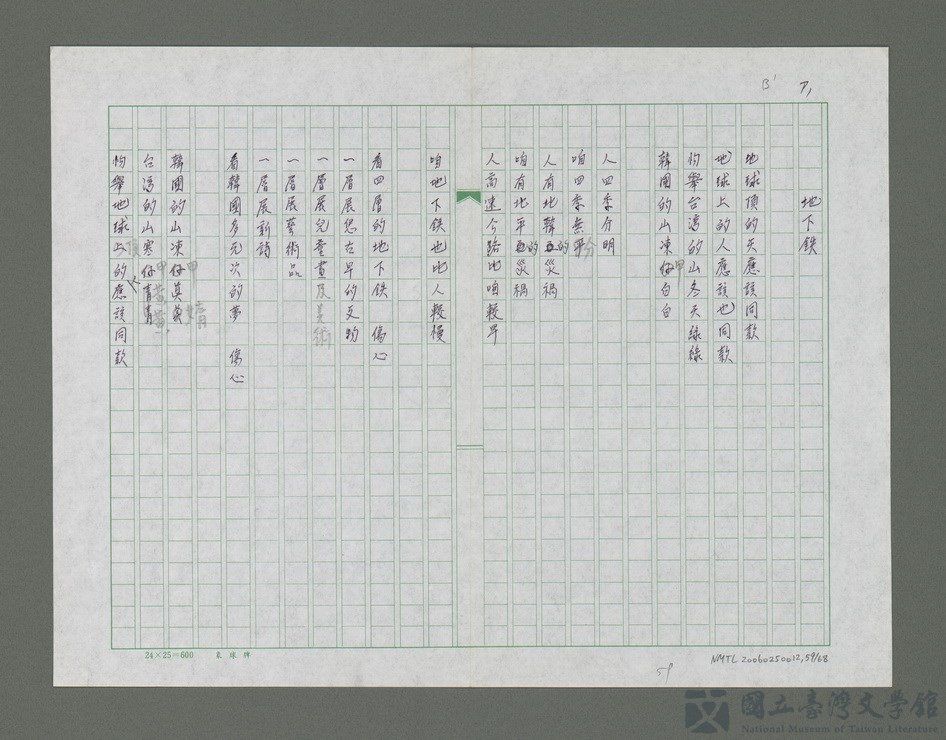 B' 7,
地下鉄
地球頂的天應該同款
地球上的人應該也同款
怐舉台灣的山冬天綠綠
韓國的山凍仔甲白白
人四季分明
咱四季無分
人有北韓的災禍
咱有北平的災禍
人高速公路比咱較早
咱地下鉄也比人較慢
看四層的地下鉄 傷心
一層展悠古早的文物
一層展兒童畫及美術
一層展藝術品
一層展新詩
看韓國多元次的夢 傷心
韓國的山凍仔甲真
台湾的山寒仔甲青青
地球上的人應該同款
24×25=600
59
NMTL 20060250012,59/68
國立臺灣文學館
National Museum of Taiwan Literature